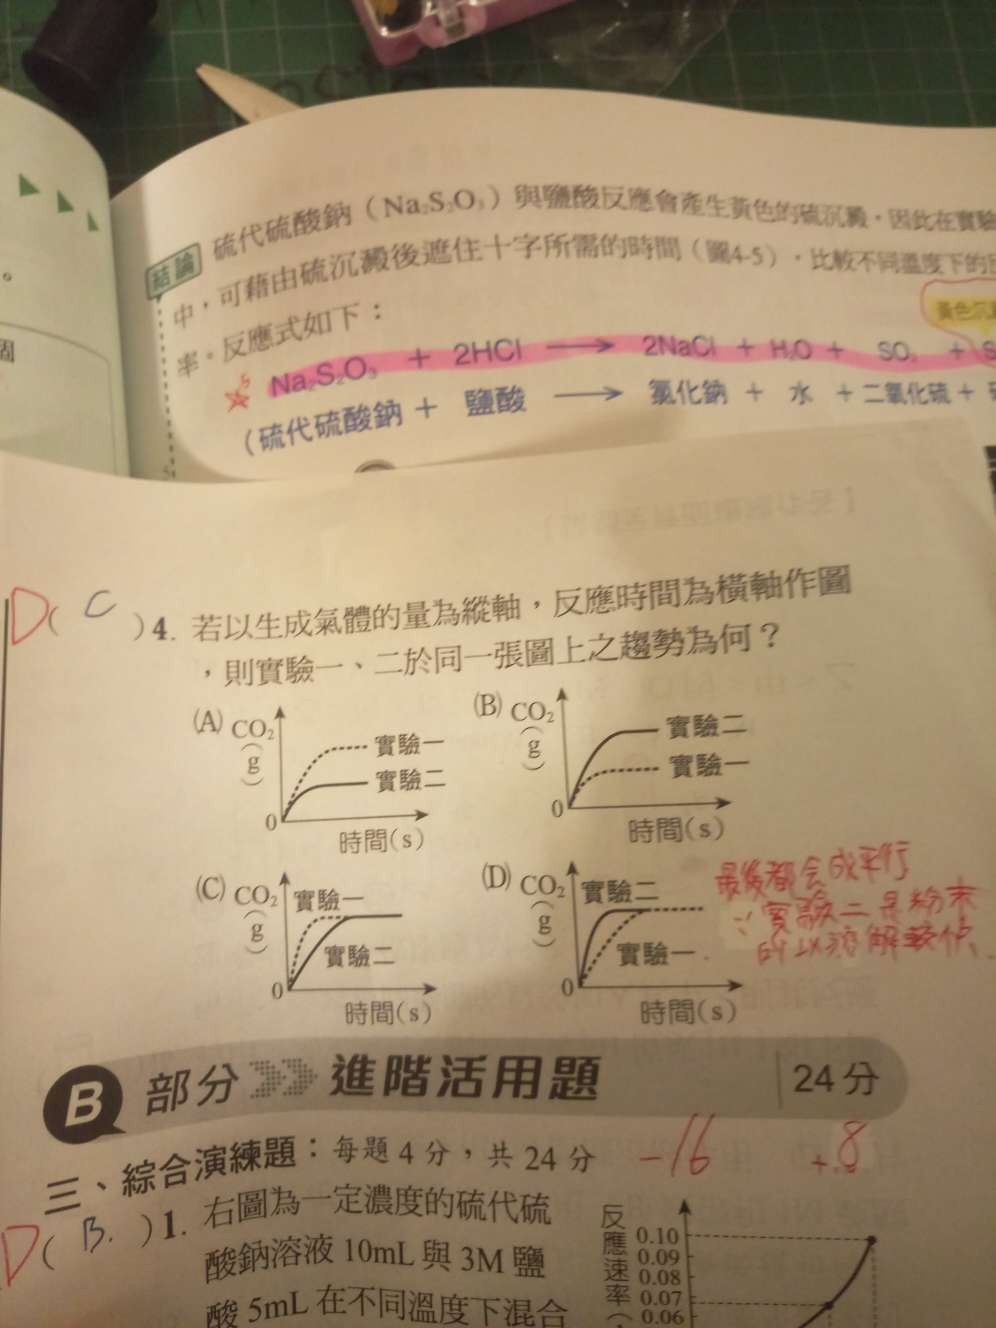 結論 硫代硫酸鈉（Na₂S₂O₃）與鹽酸反應會產生黃色的硫沉澱，因此在實驗
中，可藉由硫沉澱後遮住十字所需的時間（圖4-5），比較不同溫度下的
率。反應式如下：
黃色沉
Na₂S₂O₃ + 2HCl → 2NaCl + H₂O + SO₂ + S
（硫代硫酸鈉 + 鹽酸 → 氯化鈉 + 水 + 二氧化硫 +
D( C )4. 若以生成氣體的量為縱軸，反應時間為橫軸作圖
，則實驗一、二於同一張圖上之趨勢為何？
(A) CO₂(g) 實驗一 實驗二 0 時間(s)
(B) CO₂(g) 實驗二 實驗一 0 時間(s)
(C) CO₂(g) 實驗一 實驗二 0 時間(s)
(D) CO₂(g) 實驗二 實驗一 0 時間(s)
最後都会成平行
∵實驗二是粉末
所以溶解較快
B 部分 進階活用題 24分
三、綜合演練題：每題 4 分，共 24 分 -16 +8
D( B. )1. 右圖為一定濃度的硫代硫
酸鈉溶液 10mL 與 3M 鹽
酸 5mL 在不同溫度下混合
反應速率(
0.10
0.09
0.08
0.07
0.06